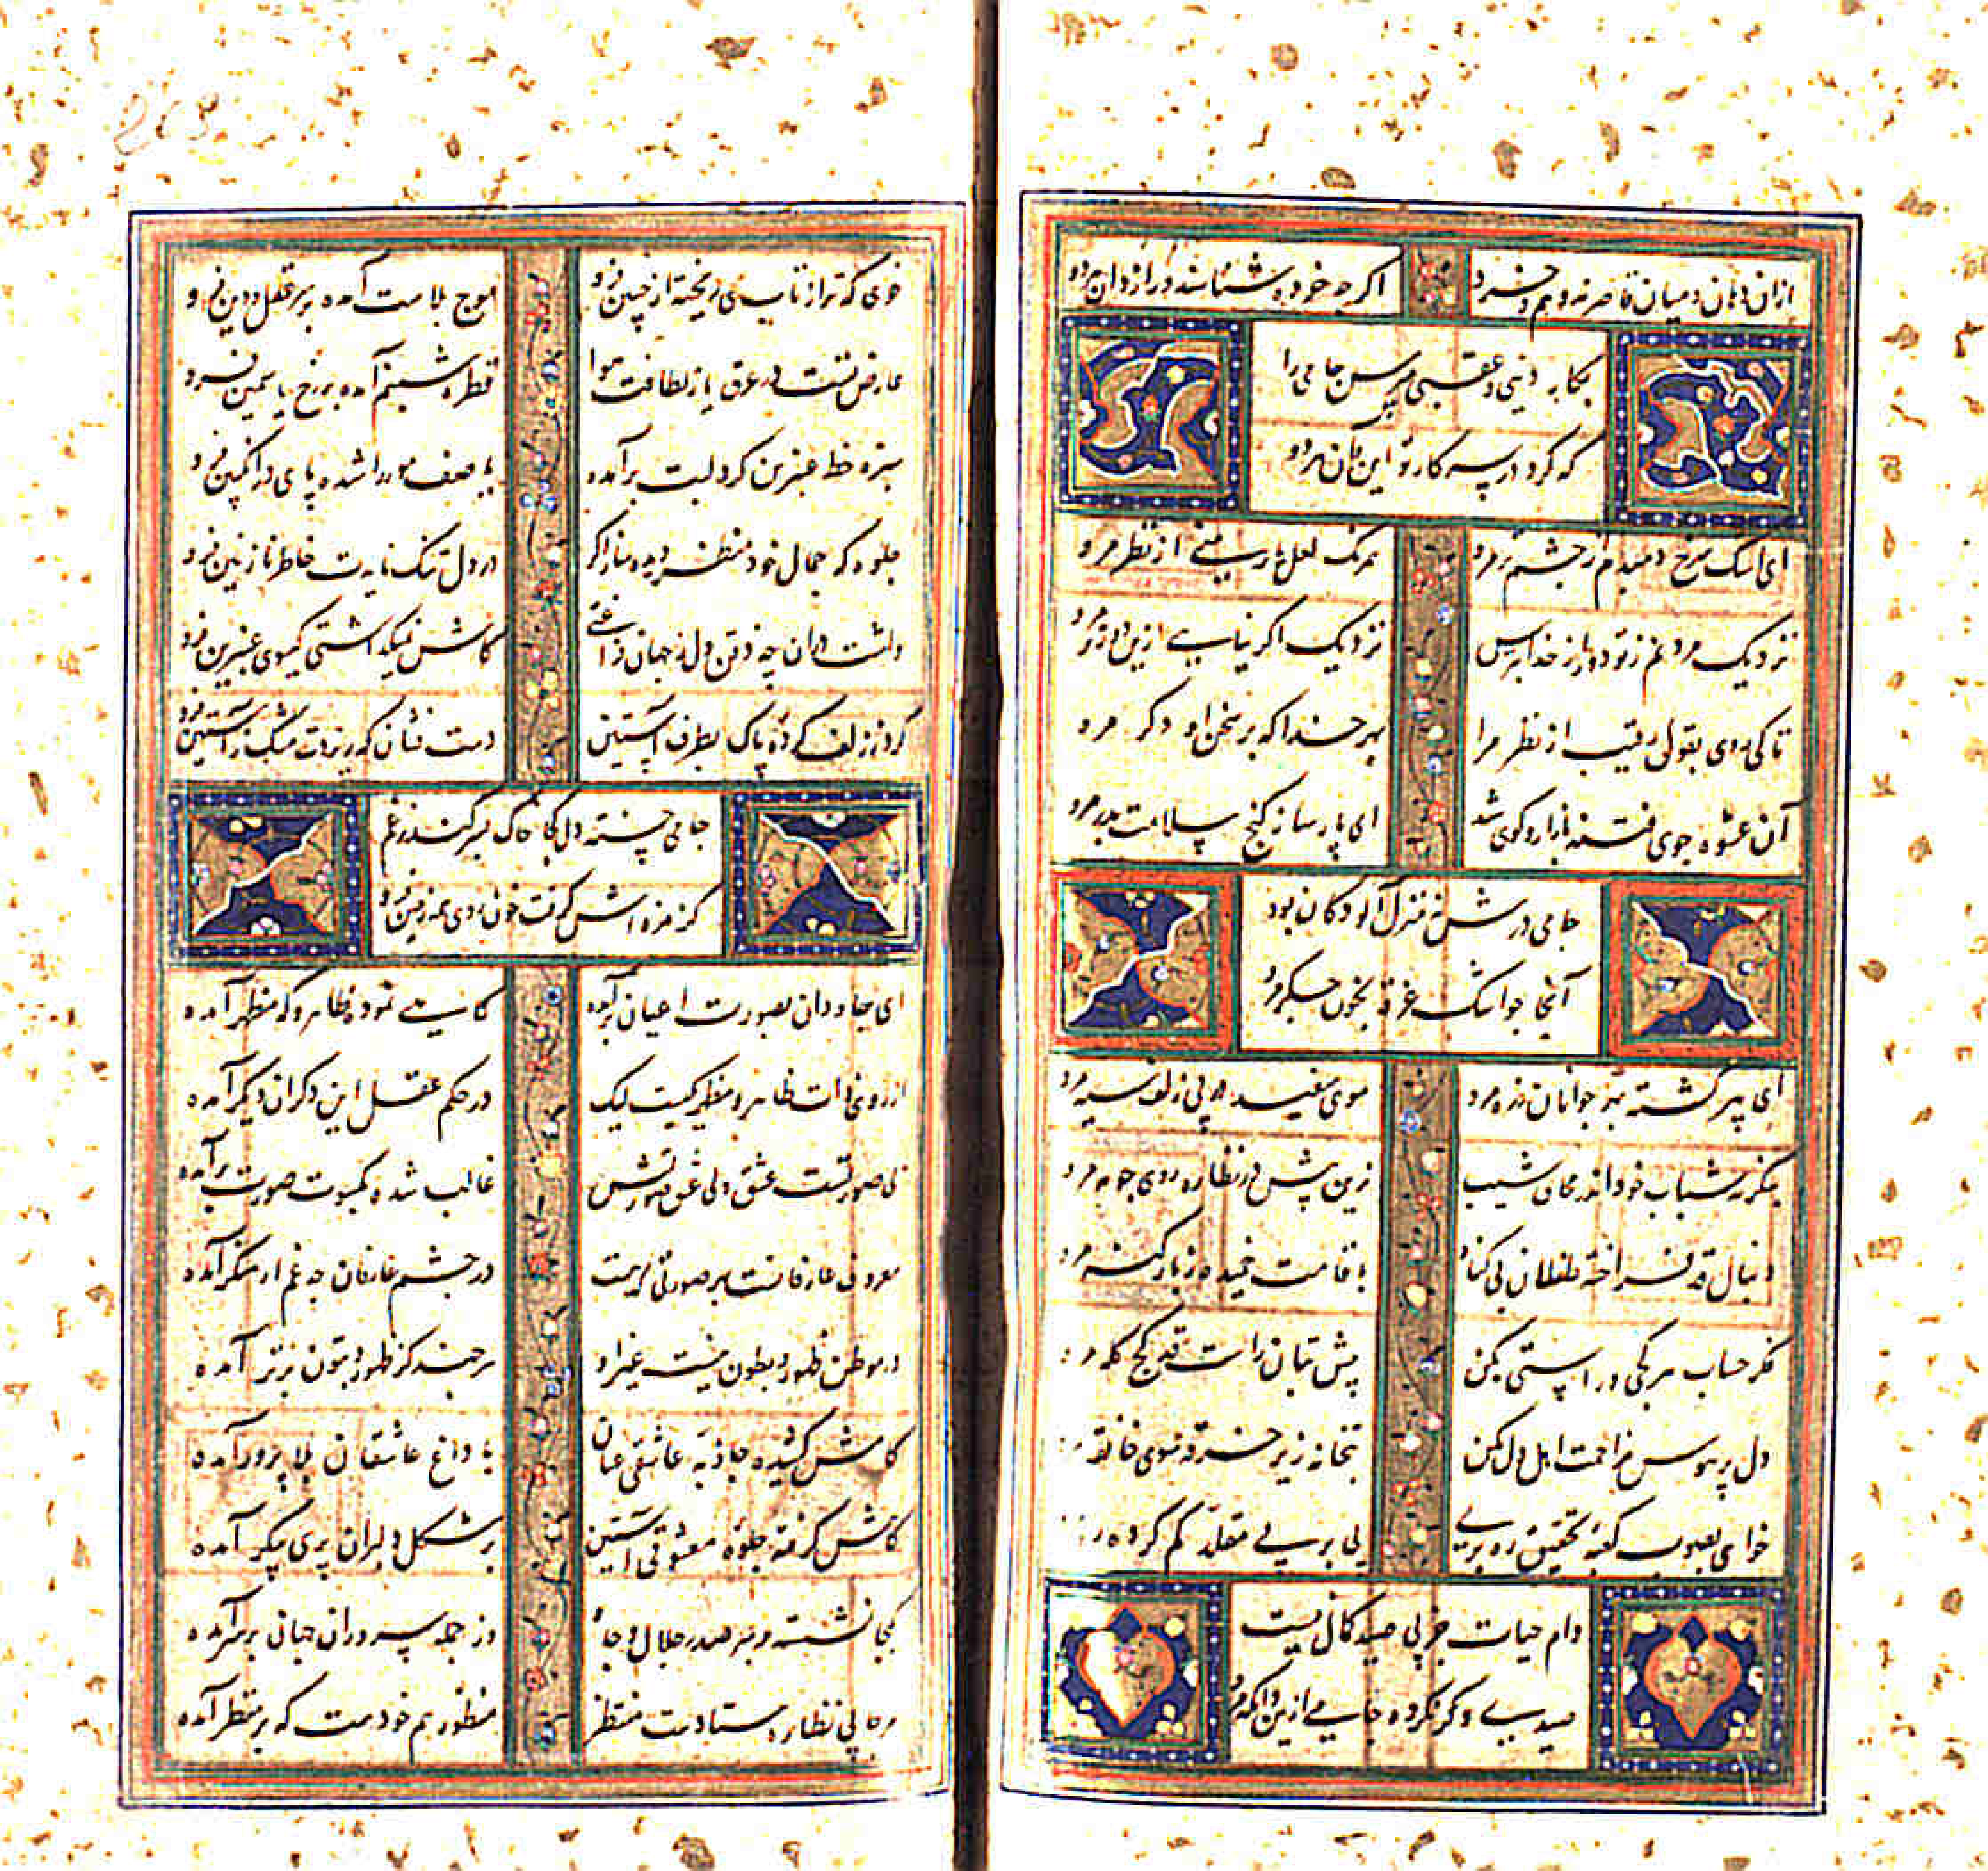 ازان دهان و میان قاصرند وهم و خرد
اگرچه خرده شناسند و رازدان هر دو
بکابه دینی و عقبی مپرس جامی را
که کرد در سر کار تو این و آن هر دو
ای اشک سرخ دمبدم از چشم تر مرو
همرنگ لعل یار منی از نظر مرو
نزدیک مردنم ز تو دور از خدا بترس
نزدیک اگر نیایی ازین دورتر مرو
تا کی روی بقول رقیب از نظر مرا
بهر خدا که بر سخن او دگر مرو
آن عشوه جوی فتنه بازار و کوی شد
ای پارسا ز کنج سلامت بدر مرو
جامی درش نه منزل آلودگان بود
آنجا جو اشک غرقه بخون جگر مرو
ای پیر گشته بهر جوانان ز ره مرو
موی سفید در پی زلف سیه مرو
بنگر شباب خود اندر محاق شیب
زین پیش در نظاره روی چو مه مرو
دنبال قد فراخته طفلان بی گناه
با قامت خمیده ز بار گنه مرو
فکر حساب هر کجی و راستی بکن
پیش بتان راست قد کج کله مرو
دل پر هوس مزاحمت اهل دل مکن
بتخانه زیر خرقه سوی خانقه
خواهی بصوب کعبه تحقیق ره بری
پی بر پی مقلد گم کرده ره
دام حیات جز پی صید کمال نیست
صیدی دگر نکرده جامی ازین دامگه مرو
خوی که تراز تاب می ریخته از جبین فرو
موج بلاست آمده بر سر عقل و دین فرو
عارض تست در عرق یا ز لطافت هوا
قطره شبنم آمده بر رخ یاسمین فرو
سبزه خط عنبرین گرد لبت برآمده
یا صف مور را شده پای در انگبین فرو
جلوه گه جمال خود منظر دیده ساز اگر
در دل تنگ نایدت خاطر نازنین فرو
داشت در آن چه ذقن دل ز جهان فراغتی
کاش نیگذاشتی گیسوی عنبرین فرو
گرد ز زلف کرده پاک بطرف آستین
دست فشان که ریزدت مشک ز آستین فرو
جامی خسته دل کجا خاک بسر کند ز غم
کز مژه اش گرفت خون روی همه زمین فرو
ای جاودان بصورت اعیان برآمده
گاهی نموده ظاهر و گه مظهر آمده
از روی ذات ظاهر و مظهر یکیست لیک
در حکم عقل این دگر آن دیگر آمده
بی صورتست عشق ولی عشق صورتش
غالب شده بکسوت صورت برآمده
معروف عارفانست بهر صورتی که هست
در چشم عارفان چه غم ار منکر آمده
در موطن ظهور و بطون نیست غیر او
هر چند کز ظهور و بطون برتر آمده
گاهش کشیده جاذبه عاشقی عنان
با داغ عاشقان بلا پرور آمده
گاهش گرفته جلوه معشوقی آستین
بر شکل دلبران پری پیکر آمده
یکجا نشسته بر سر صدر جلال و جاه
وز جمله سروران جهانی برسرآمده
هر جا پی نظاره ستادست منتظر
منظور هم خودست که بر منظر آمده